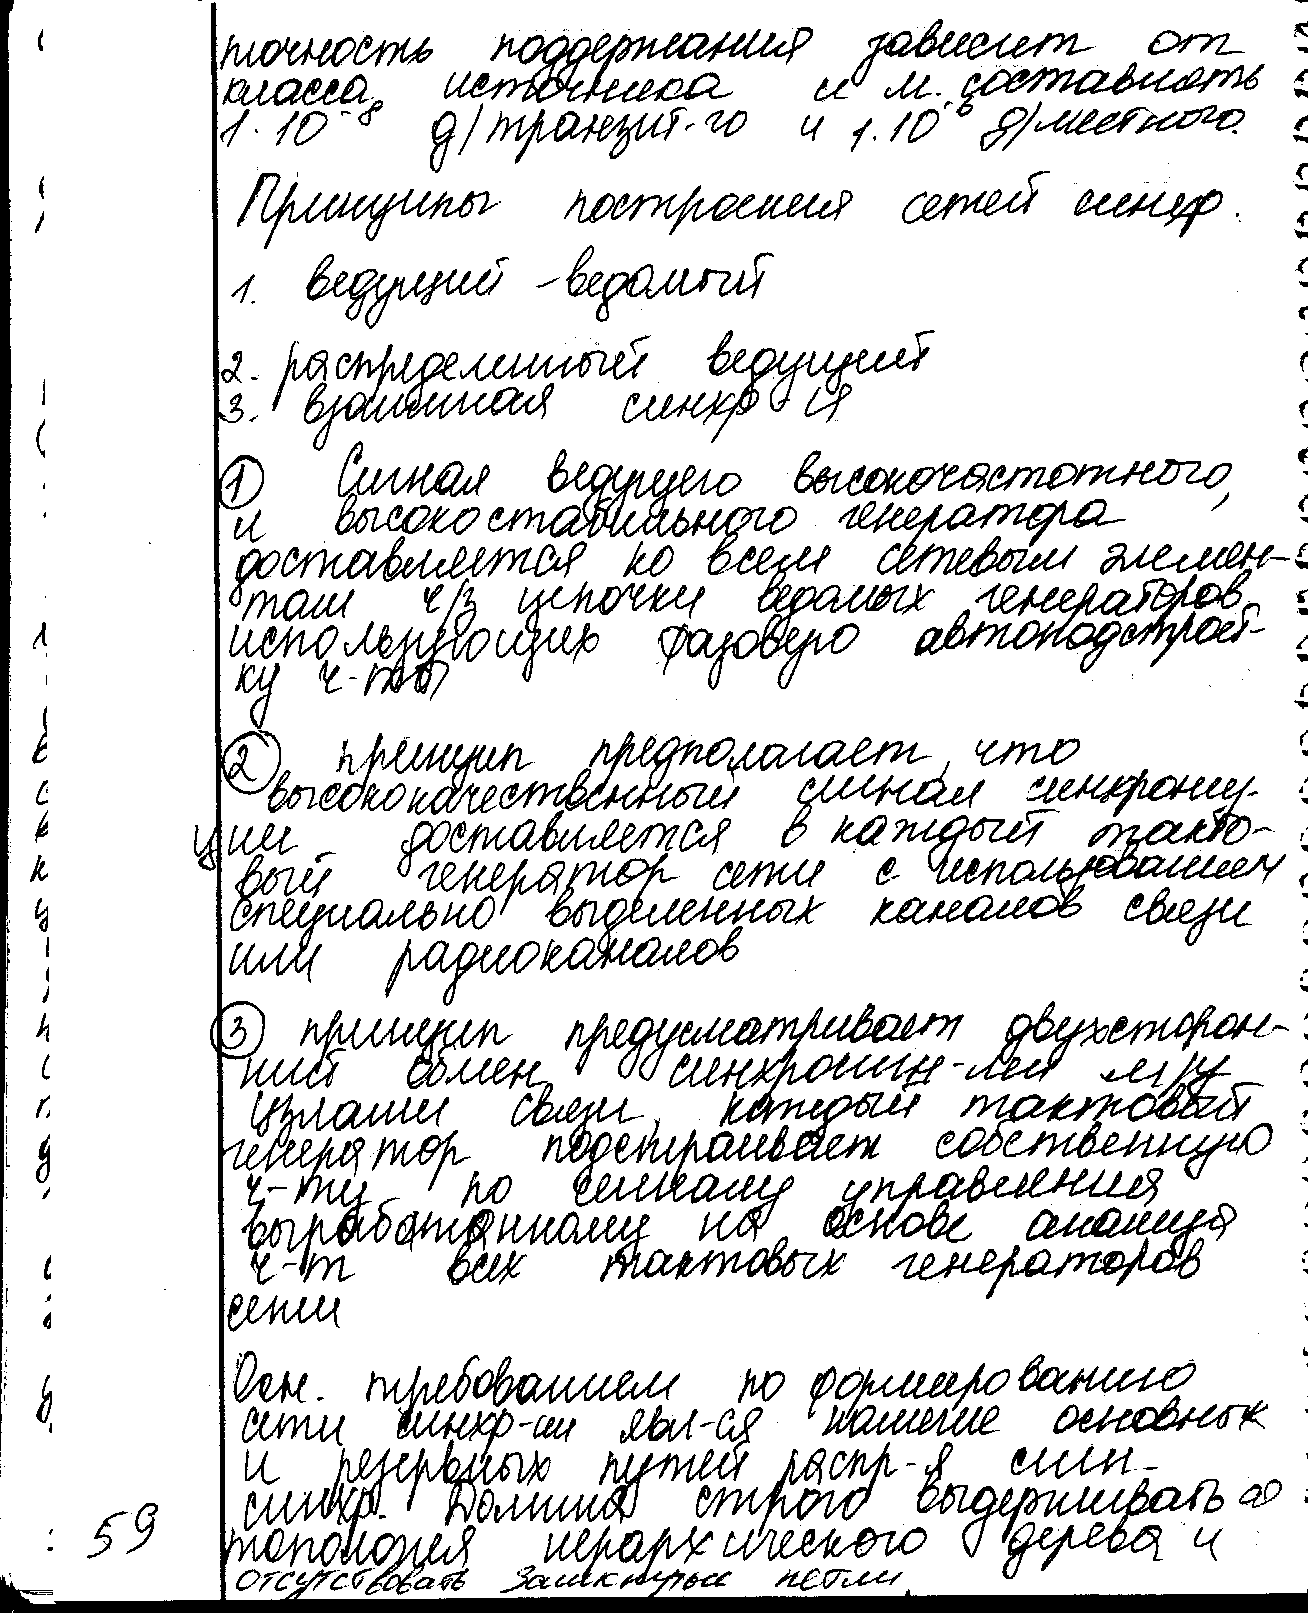 точность поддержания зависит от
класса источника и м. составлять
1·10⁻⁸ д/транзит-го и 1·10⁻⁶ д/местного.
Принципы построения сетей синхр.
1. ведущий - ведомый
2. распределенный ведущий
3. взаимная синхр-ия
① Сигнал ведущего высокочастотного,
и высокостабильного генератора
доставляется ко всем сетевым элемен-
там ч/з цепочки ведомых генераторов,
использующих фазовую автоподстрой-
ку ч-ты
② принцип предполагает, что
высококачественный сигнал синхрониз-
ции доставляется в каждый такто-
вый генератор сети с использованием
специально выделенных каналов связи
или радиоканалов
③ принцип предусматривает двухсторон-
ний обмен м/у
узлами связи, каждый тактовый
генератор подстраивает собственную
ч-ту по сигналу управления
выработанному на основе анализа
ч-т всех тактовых генераторов
сети
Осн. требованием по формированию
сети синхр-ии явл-ся наличие основных
и резервных путей распр-я син-
синхр. Должна строго выдерживаться
топология иерархического дерева и
отсутствовать замкнутые петли
59